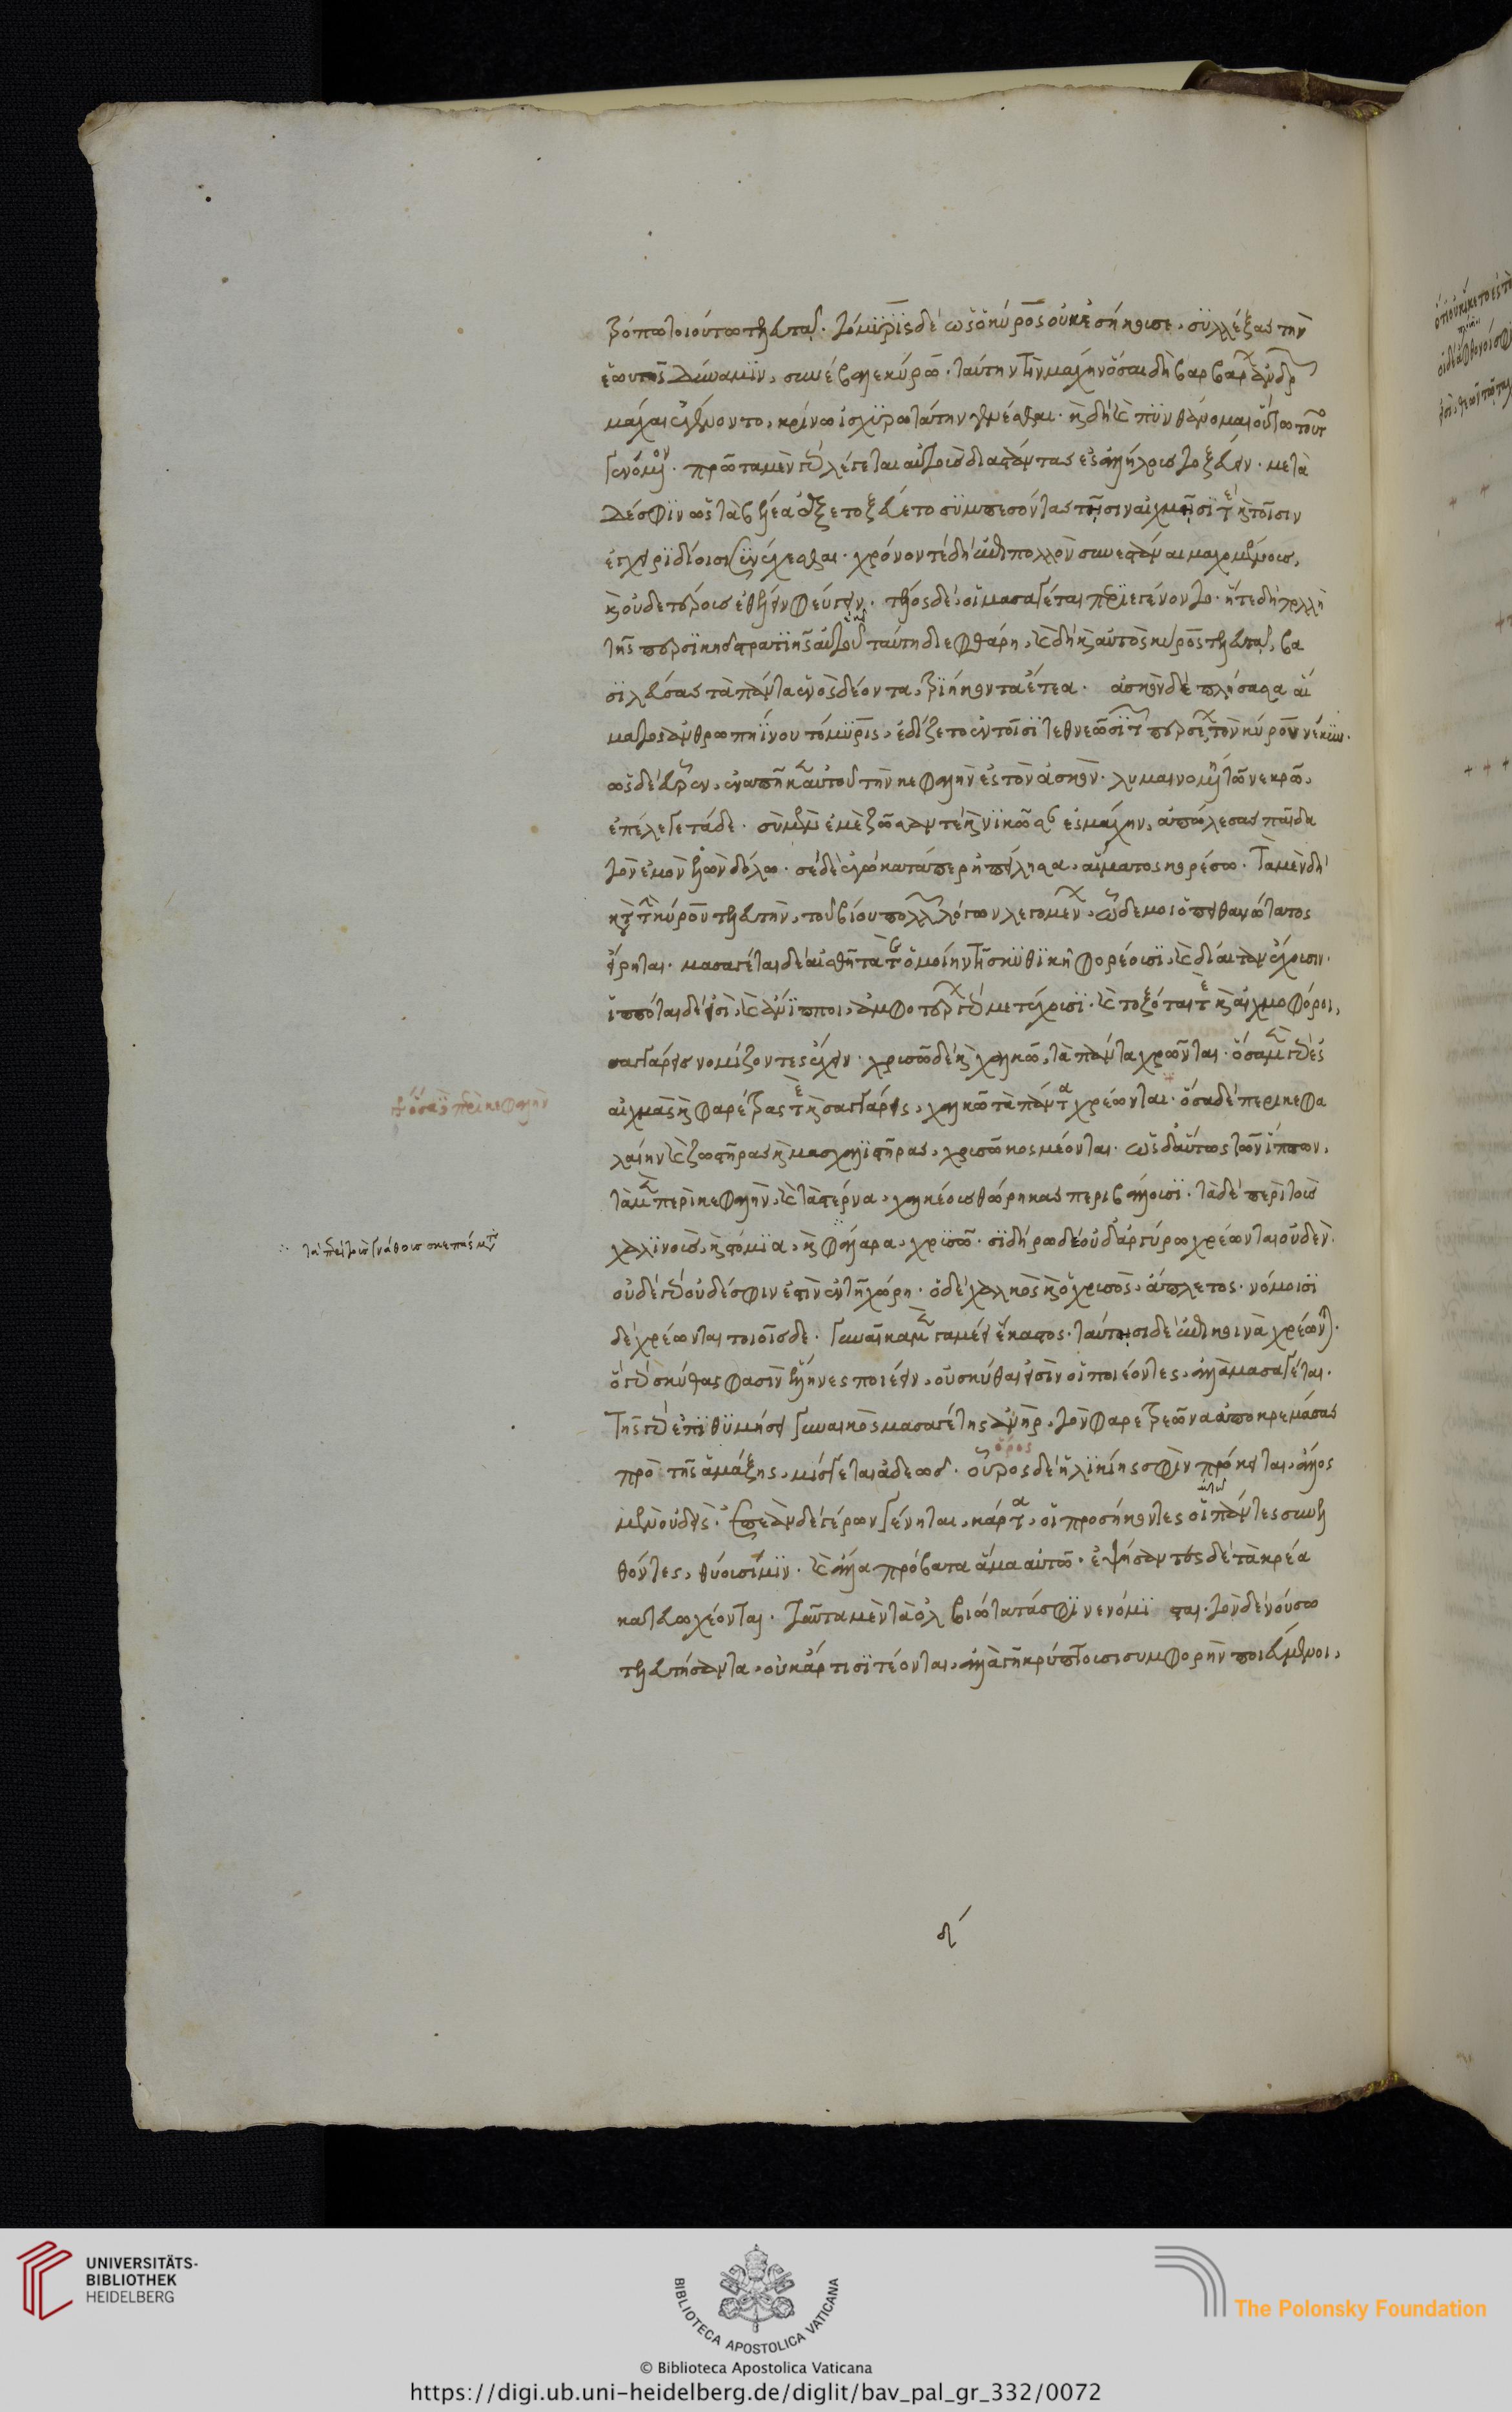 τρόπω τοιούτω τελευτᾶ. τόμυρις δὲ ὥς ὁ κύρος οὐκ ἐσήκουσε, συλλέξας τὴν
ἑωυτῆς δύναμιν, συνέβαλε κύρω. ταύτην τὴν μάχην ὅσαι δὴ βαρβάρων ἀνδρῶν
μάχαι ἐγένοντο, κρίνω ἰσχυροτάτην γενέσθαι. καὶ δὴ καὶ πυνθάνομαι οὕτω τοῦτο
γενόμενον. πρῶτα μὲν γὰρ λέγεται αὐτοὺς διαστάντας ἐς ἀλλήλους τοξεύειν. μετὰ
δέ σφιν ὡς τὰ βέλεα ἐξετοξεύετο συμπεσόντας τῆσιν αἰχμῆσί τε καὶ τοῖσιν
ἐγχειριδίοισι συνέχεσθαι. χρόνον τε δὴ ἐπὶ πολλὸν συνεστάναι μαχομένους,
καὶ οὐδετέρους ἐθέλειν φεύγειν. τέλος δὲ, οἱ μασαγέται περιεγένοντο. ἥ τε δὴ πολλὴ
τῆς περσικῆς στρατιῆς αὐτοῦ ταύτη διεφθάρη, καὶ δὴ καὶ αὐτὸς κύρος τελευτᾶ, βα
σιλεύσας τὰ πάντα ἑνὸς δέοντα, τριήκοντα ἔτεα. ἀσκὸν δὲ πλήσασα αἵ
ματος ἀνθρωπηίνου τόμυρις, ἐδίζετο ἐν τοῖσι τεθνεῶσι τῶν περσέων τὸν κύρου νέκυν.
ὡς δὲ εὗρεν, ἐναπῆκε αὐτοῦ τὴν κεφαλὴν ἐς τὸν ἀσκὸν. λυμαινομένη τῶ νεκρῶ,
ἐπέλεγε τάδε. σὺ μὲν ἐμὲ ζῶσάν τε καὶ νικῶσάν σε μάχην, ἀπώλεσας παῖδα
τὸν ἐμὸν ἑλὼν δόλω. σὲ δὲ ἐγὼ κατάπερ ἠπείλησα, αἵματος κορέσω. τὰ μὲν δὴ
κατὰ τὴν κύρου τελευτὴν, τοῦ βίου πολλῶν λόγων λεγομένων, ὧδε μοι ὁ πιθανώτατος
εἴρηται. μασαγέται δὲ αἰσθῆτά τε ὁμοίην τῆ σκυθικῆ φορέουσι, καὶ δίαιταν ἔχουσιν.
ἱππόται δέ εἰσι, καὶ ἄνιπποι, ἀμφοτέρων γὰρ μετέχουσι. καὶ τοξόται τε καὶ αἰχμοφόροι,
σαγάρεις νομίζοντες ἔχειν. χρυσῶ δὲ καὶ χαλκῶ, τὰ πάντα χρῶνται. ὅσα μὲν γὰρ ἐς
αἰχμὰς καὶ φαρέτρας τε καὶ σαγάρεις, χαλκῶ τὰ πάντα χρέωνται. ὅσα δὲ περὶ κεφα
λαὴν καὶ ζωστῆρας καὶ μασχαλιστῆρας, χρυσῶ κοσμέονται. ὡς δ' αὔτως τῶν ἵππων,
τὰ μὲν περὶ κεφαλὴν, καὶ τὰ στέρνα, χαλκέους θώρηκας περιβάλλουσι. τὰ δὲ περὶ τοὺς
χαλινοὺς, καὶ στόμια, καὶ φάλαρα, χρυσῶ. σιδήρω δὲ οὐδ' ἀργύρω χρέωνται οὐδὲν.
οὐδὲ γὰρ οὐδέ σφιν ἐστὶν ἐν τῆ χώρη. ὁ δὲ χαλκὸς καὶ ὁ χρυσὸς, ἄπλετος. νόμοισι
δὲ χρέωνται τοιοῖσδε. γυναῖκα μὲν γαμέει ἕκαστος. ταύτησι δὲ ἐπίκοινα χρέωνται.
ὃ γὰρ σκύθας φασὶν ἕλληνες ποιέειν, οὐ σκύθαι εἰσὶν οἱ ποιέοντες, ἀλλὰ μασαγέται.
τῆς γὰρ ἐπιθυμήσει γυναικὸς μασαγέτης ἀνὴρ, τὸν φαρετρεῶνα ἀποκρεμάσας
πρὸ τῆς ἁμάξης, μίσγεται ἀδεῶς. οὖρος δὲ ἡλικίης σφὶν πρόκειται, ἄλλος
μὲν οὐδεὶς. ἐπεὰν δὲ γέρων γένηται, κάρτα, οἱ προσήκοντές οἱ πάντες συνελ
θόντες, θύουσί μιν. καὶ ἄλλα πρόβατα ἅμα αὐτῶ. ἑψήσαντες δὲ τὰ κρέα
κατευωχέονται. ταῦτα μὲν τὰ ὀλβιώτατά σφι νενόμι σται. τὸν δὲ νούσω
τελευτήσαντα, οὐ κάρτι σιτέονται, ἀλλὰ γῆ κρύπτουσι συμφορὴν ποιεύμενοι,
ὅσα περὶ κεφαλὴν
τὰ περὶ τοὺς γνάθους σκεπάσματα
ὅρος
UNIVERSITÄTS-
BIBLIOTHEK
HEIDELBERG
BIBLIOTECA APOSTOLICA VATICANA
© Biblioteca Apostolica Vaticana
The Polonsky Foundation
https://digi.ub.uni-heidelberg.de/diglit/bav_pal_gr_332/0072